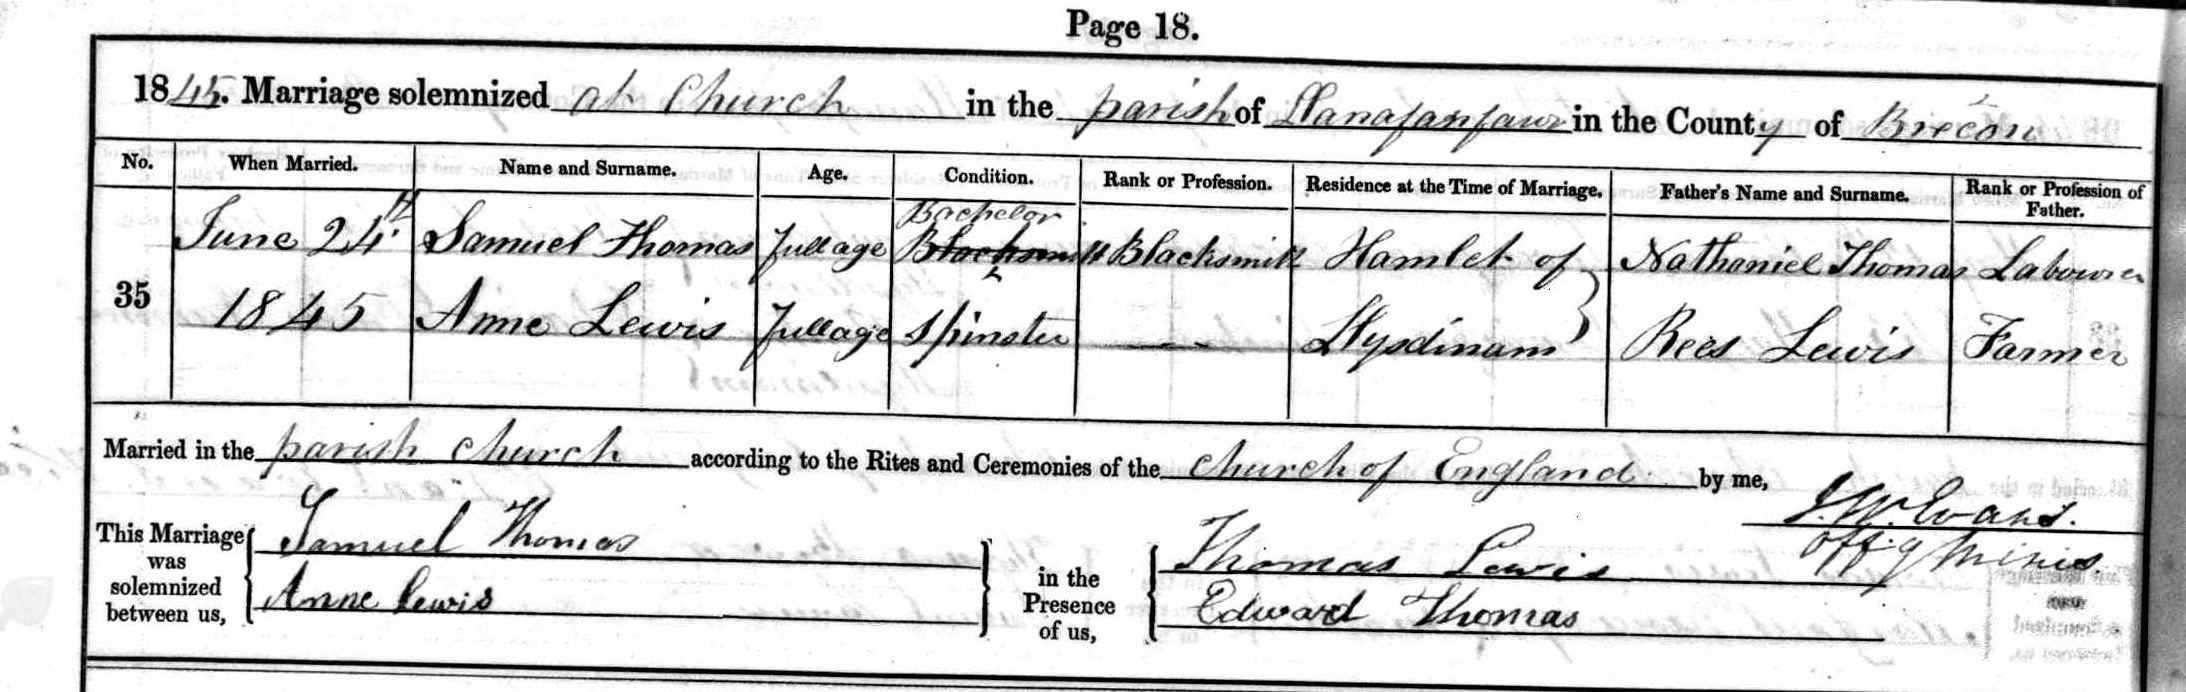 Page 18.
1845. Marriage solemnized at Church in the parish of Llanafanfawr in the County of Brecon
No. When Married. Name and Surname. Age. Condition. Rank or Profession. Residence at the Time of Marriage. Father's Name and Surname. Rank or Profession of Father.
Bachelor
June 24th Samuel Thomas Full age Blacksmith Blacksmith Hamlet of Nathaniel Thomas Labourer
35
1845 Anne Lewis Full age Spinster — Llysdinam Rees Lewis Farmer
Married in the parish church according to the Rites and Ceremonies of the church of England by me,
J. W. Evans.
Offg Minis
This Marriage was solemnized between us,
Samuel Thomas
Anne Lewis
in the Presence of us,
Thomas Lewis
Edward Thomas